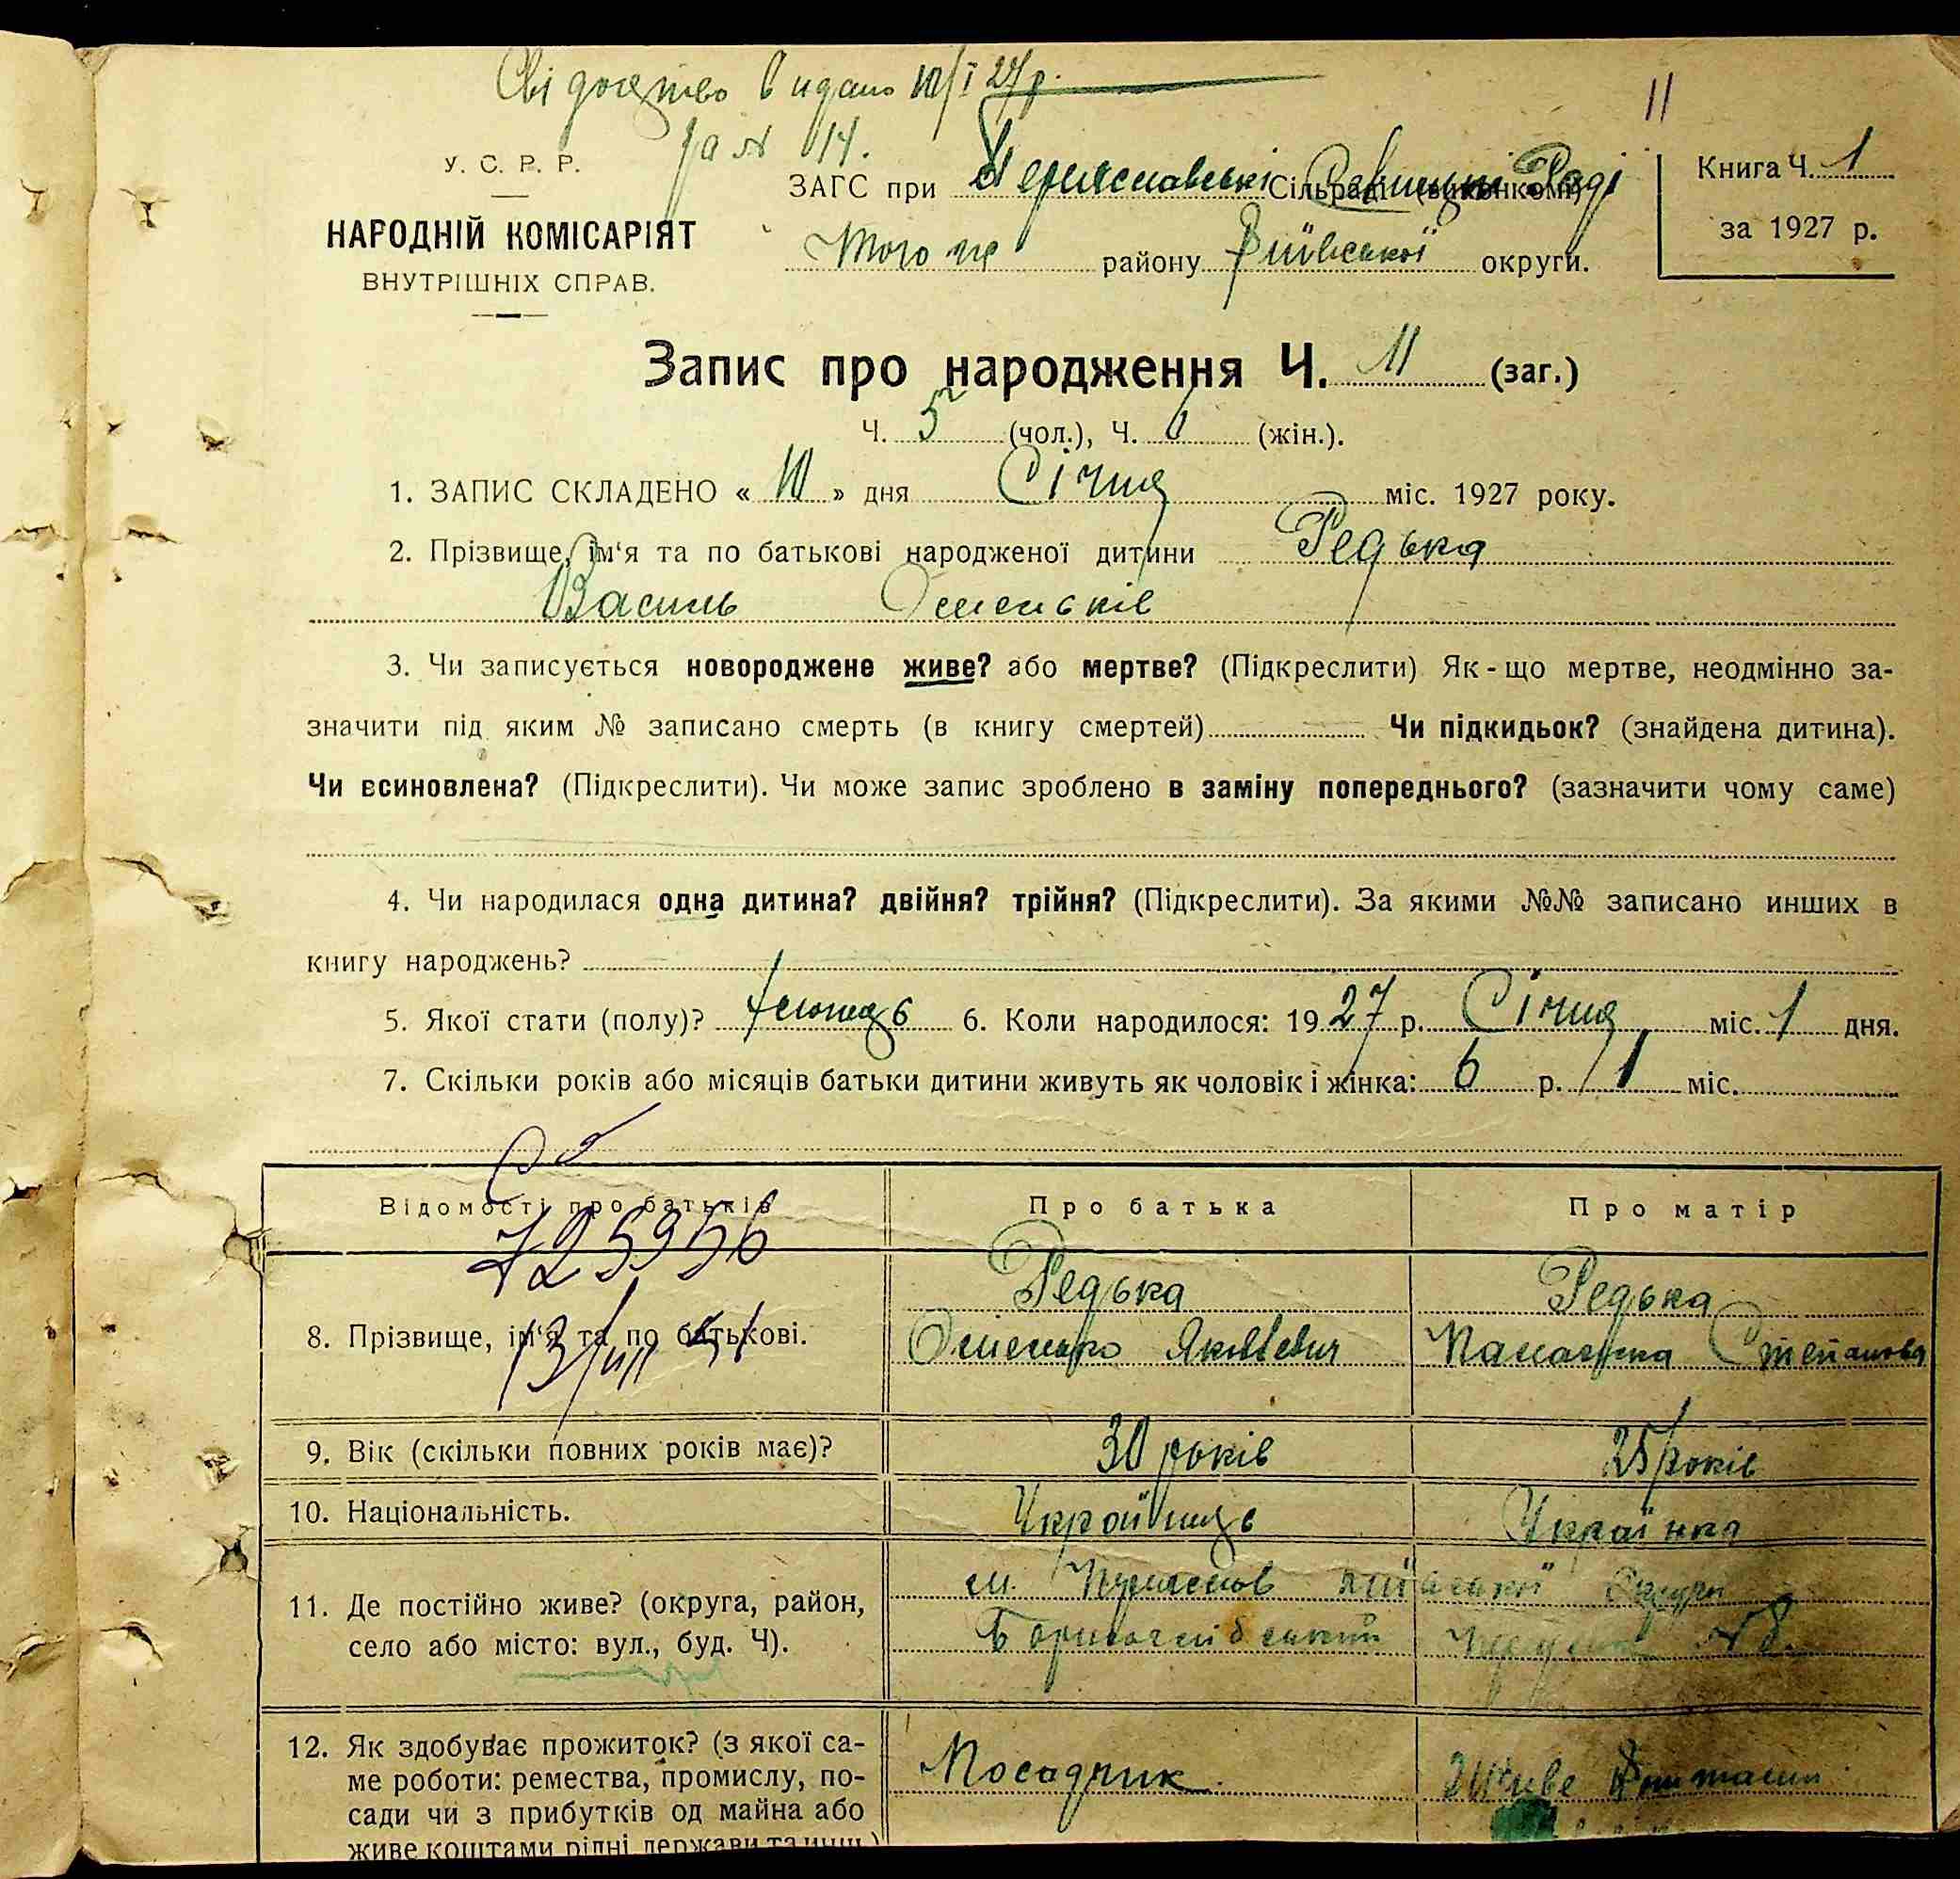 Свідоцтво видано 10/I 27 р.
за № 14.
11
У. С. Р. Р.
НАРОДНІЙ КОМІСАРІЯТ
ВНУТРІШНІХ СПРАВ.
ЗАГС при Переяславські Сільраді (виконкомі) Раді
Того же району Київської округи.
Книга Ч. 1
за 1927 р.
Запис про народження Ч. 11 (заг.)
Ч. 5 (чол.), Ч. 6 (жін.).
1. ЗАПИС СКЛАДЕНО « 10 » дня Січня міс. 1927 року.
2. Прізвище, ім‘я та по батькові народженої дитини Редька
Василь
3. Чи записується новороджене живе? або мертве? (Підкреслити) Як-що мертве, неодмінно за-
значити під яким № записано смерть (в книгу смертей) Чи підкидьок? (знайдена дитина).
Чи всиновлена? (Підкреслити). Чи може запис зроблено в заміну попереднього? (зазначити чому саме)
4. Чи народилася одна дитина? двійня? трійня? (Підкреслити). За якими №№ записано инших в
книгу народжень?
5. Якої стати (полу)? 6. Коли народилося: 1927 р. Січня міс. 1 дня.
7. Скільки років або місяців батьки дитини живуть як чоловік і жінка: 6 р. 1 міс.
Відомості про батьків
Про батька
Про матір
725956
8. Прізвище, ім‘я та по батькові.
Редька
Якович
Редька
Степанова
9. Вік (скільки повних років має)?
30 років
25 років
10. Національність.
Українець
Українка
11. Де постійно живе? (округа, район,
село або місто: вул., буд. Ч).
м. Переяслов Київської Округи
№ 8.
12. Як здобуває прожиток? (з якої са-
ме роботи: ремества, промислу, по-
сади чи з прибутків од майна або
живе коштами рідні, держави та инш.)
Посадчик.
Живе